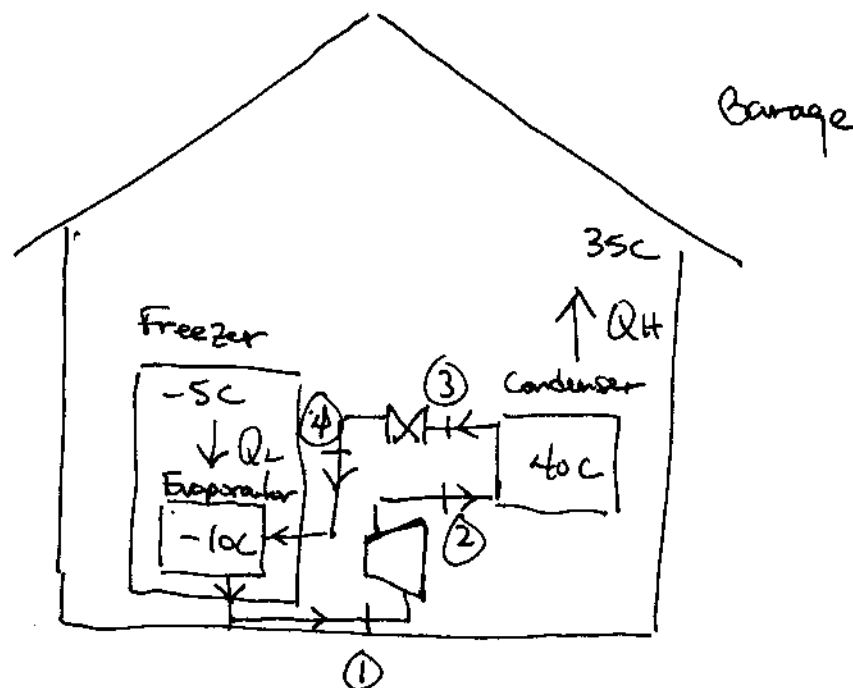 Garage
35C
QH
Freezer
-5C
QL
Evaporator
-10C
④
③
Condenser
40C
②
①